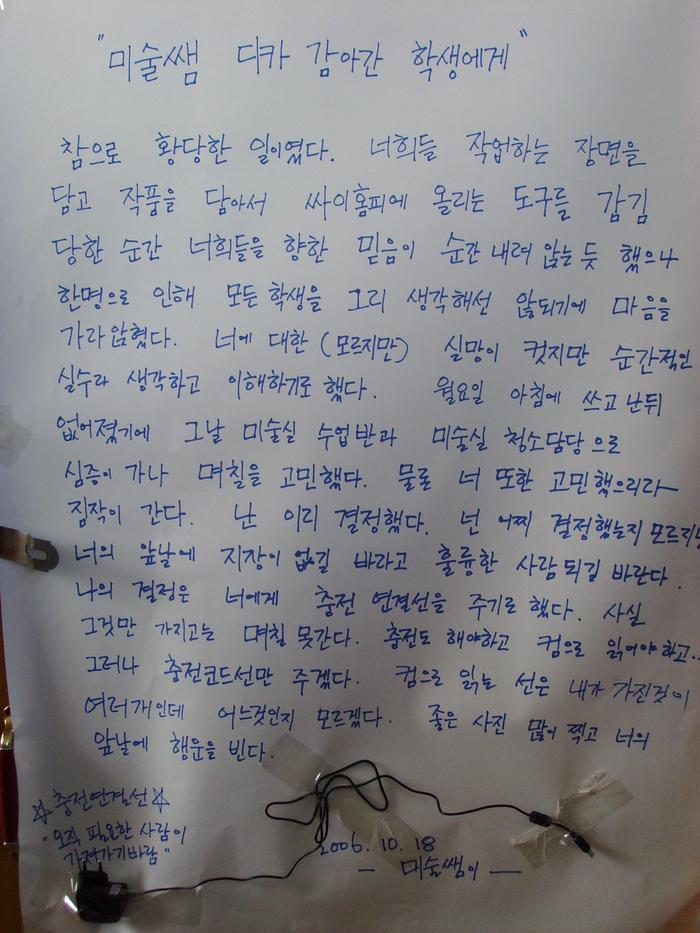 "미술쌤 디카 감아간 학생에게"
참으로 황당한 일이였다. 너희들 작업하는 장면을
담고 작품을 담아서 싸이홈피에 올리는 도구를 감김
당한 순간 너희들을 향한 믿음이 순간 내려 앉는 듯 했으나
한명으로 인해 모든 학생을 그리 생각해선 않되기에 마음을
가라앉혔다. 너에 대한 (모르지만) 실망이 컷지만 순간적인
실수라 생각하고 이해하기로 했다. 월요일 아침에 쓰고 난뒤
없어졌기에 그날 미술실 수업반과 미술실 청소담당으로
심증이 가나 며칠을 고민했다. 물론 너 또한 고민했으리라
짐작이 간다. 난 이리 결정했다. 넌 어찌 결정했는지 모르지만
너의 앞날에 지장이 없길 바라고 훌륭한 사람 되길 바란다.
나의 결정은 너에게 충전 연결선을 주기로 했다. 사실
그것만 가지고는 며칠 못간다. 충전도 해야하고 컴으로 읽어야 하고..
그러나 충전코드선만 주겠다. 컴으로 읽는 선은 내가 가진것이
여러개인데 어느것인지 모르겠다. 좋은 사진 많이 찍고 너의
앞날에 행운을 빈다.
☆충전연결선☆
"오직 필요한 사람이
가져가기바람"
2006. 10. 18
- 미술쌤이 -